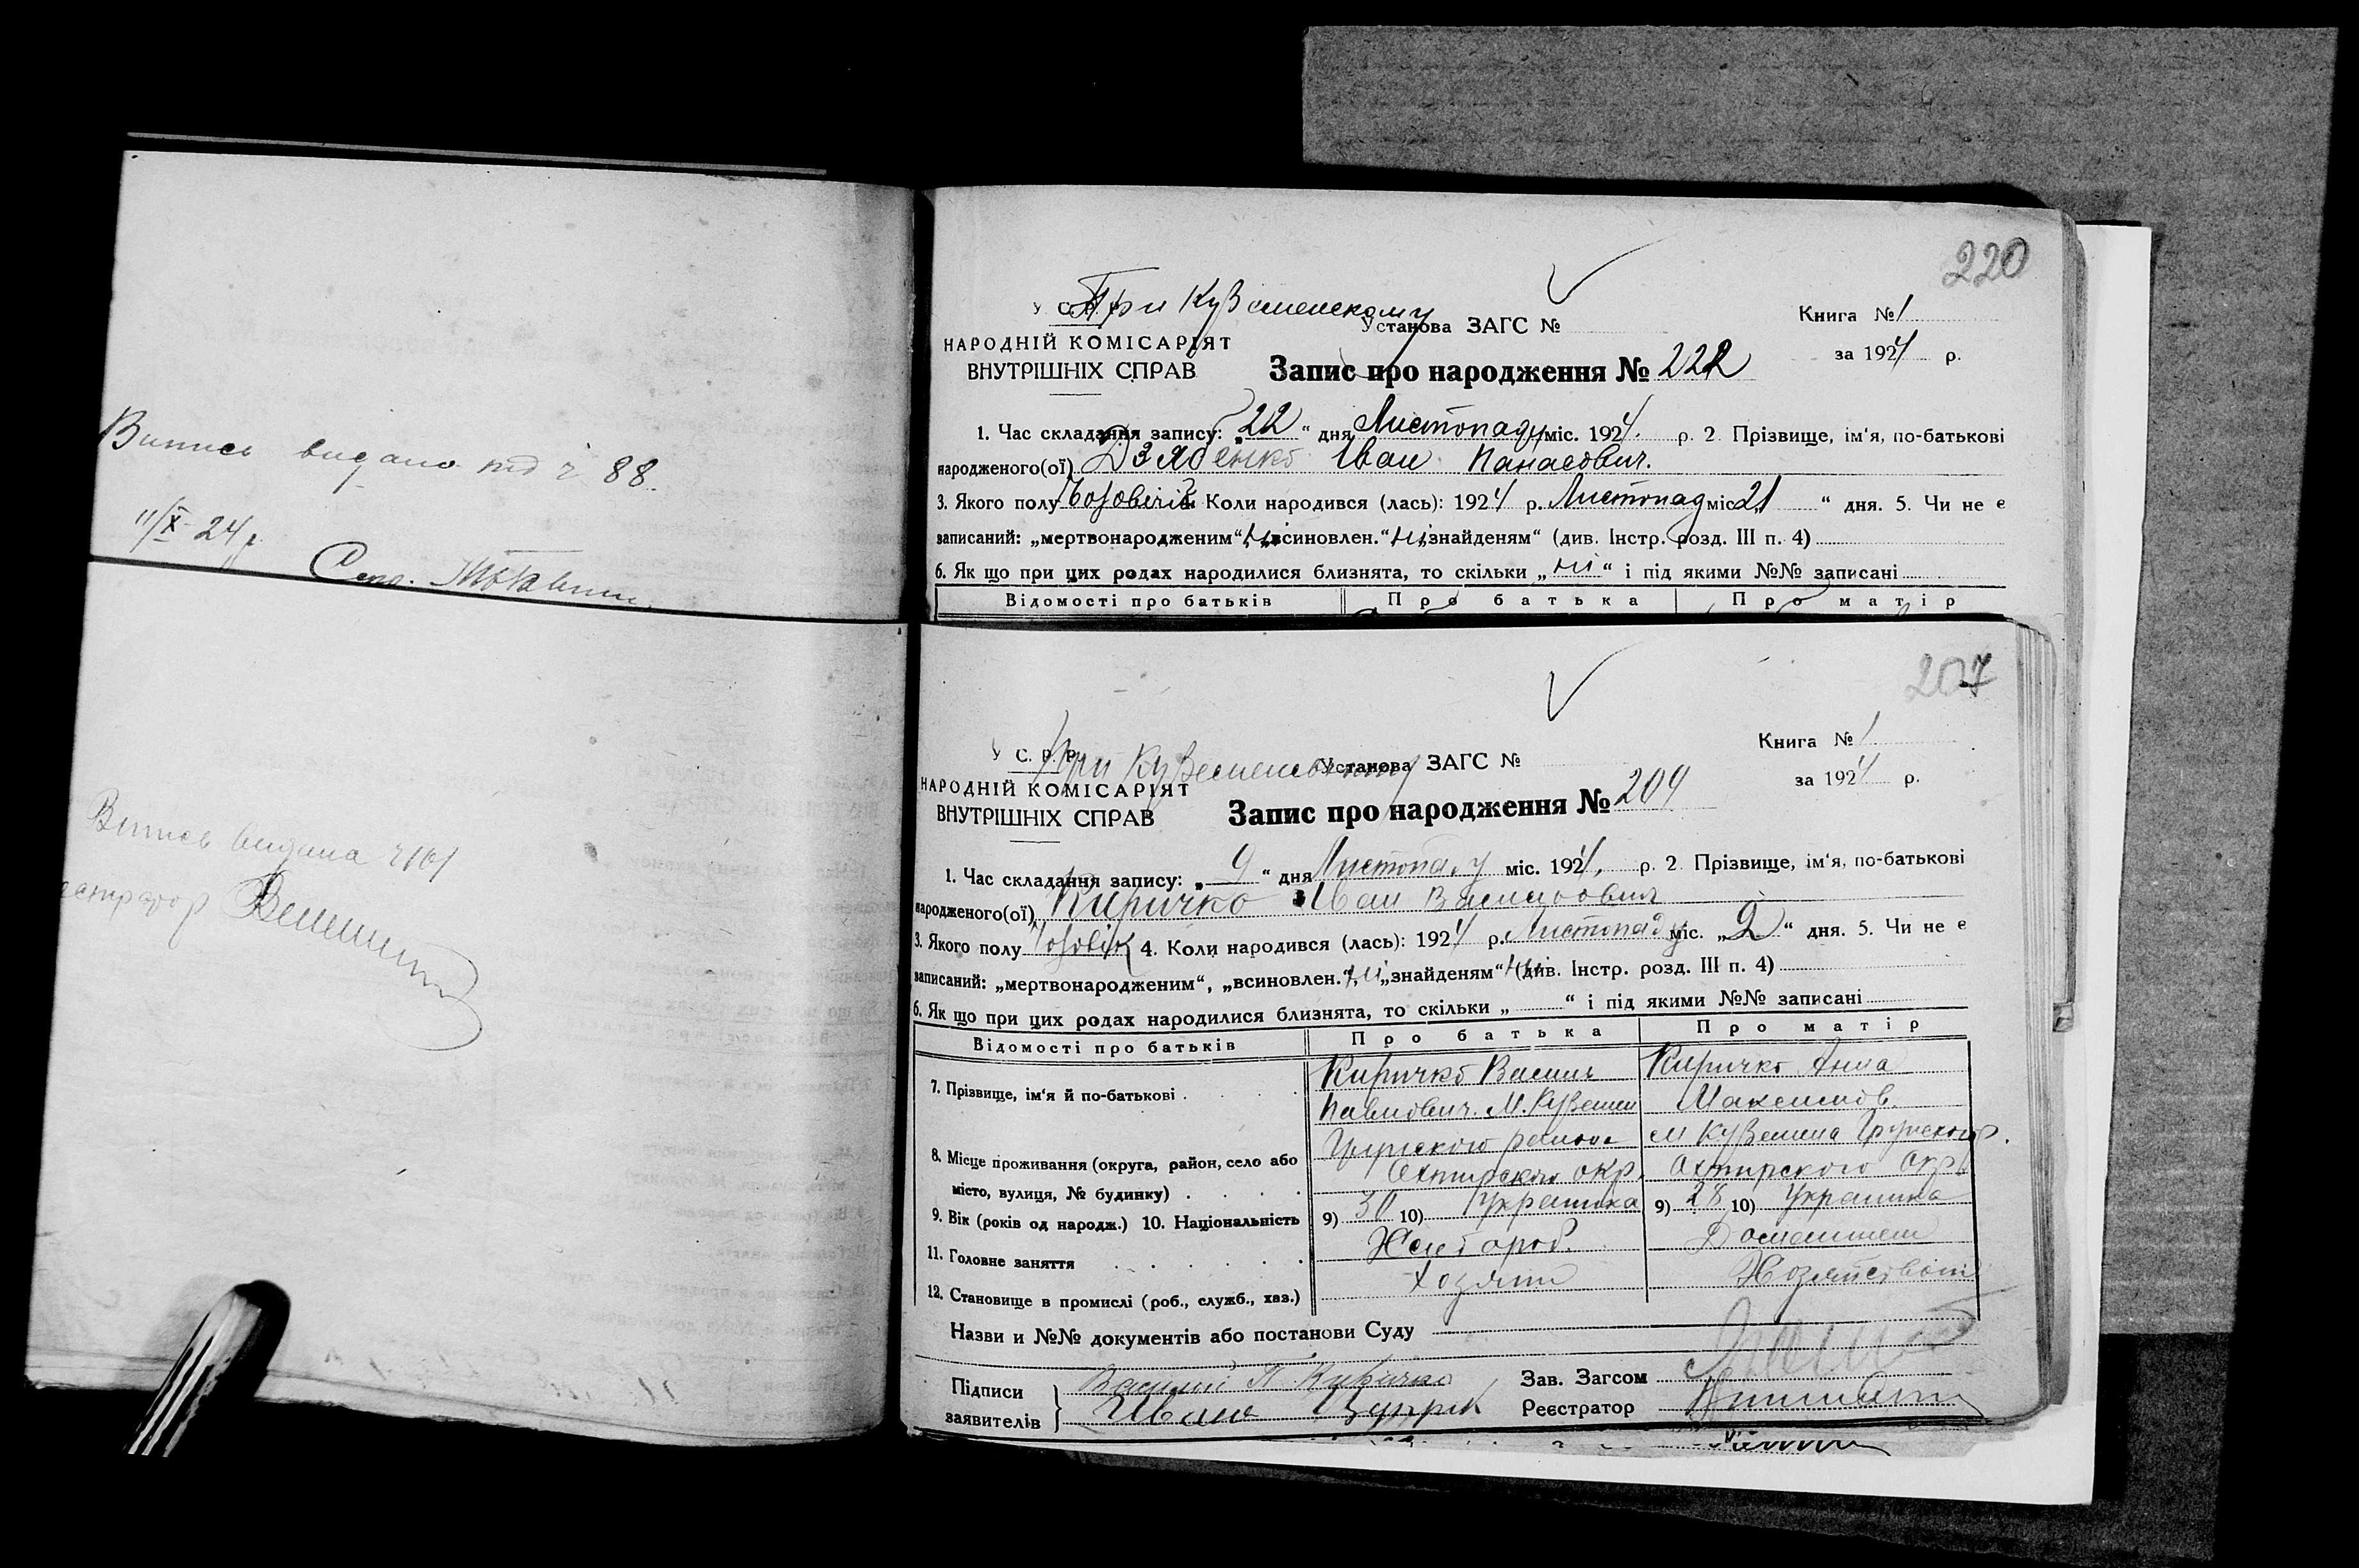 Выпись видано під ч 88.
11/X 24 р.
220
У С. Р. Р.
При Куземенському
Установа ЗАГС №
Книга № 1
НАРОДНІЙ КОМІСАРІЯТ
ВНУТРІШНІХ СПРАВ
Запис про народження № 222
за 1924 р.
1. Час складання запису: „22“ дня Листопаду міс. 1924 р. 2 Прізвище, ім'я, по-батькові
народженого(ої) Дзябенко Іван Панасович.
3. Якого полу 4. Коли народився (лась): 1924 р. Листопад міс 21 “ дня. 5. Чи не е
записаний: „мертвонародженим“, ні „всиновлен.“ ні „знайденям“ (див. Інстр. розд. III п. 4)
6. Як що при цих родах народилися близнята, то скільки „ні“ і під якими №№ записані
Відомості про батьків Про батька Про матір
207
Випись видана ч 101
У С. Р. Р.
При
Установа ЗАГС №
Книга № 1
НАРОДНІЙ КОМІСАРІЯТ
ВНУТРІШНІХ СПРАВ
Запис про народження № 209
за 1924 р.
1. Час складання запису: „9“ дня Листопаду міс. 1924, р. 2 Прізвище, ім'я, по-батькові
народженого(ої) Киричко Іван Васильович
3. Якого полу Чоловік 4. Коли народився (лась): 1924 р. Листопаду міс. „2“ дня. 5. Чи не е
записаний: „мертвонародженим“, „всиновлен.“, ні „знайденям“ ні (див. Інстр. розд. III п. 4)
6. Як що при цих родах народилися близнята, то скільки „ “ і під якими №№ записані
Відомості про батьків Про батька Про матір
7. Прізвище, ім'я й по-батькові Киричко Василь Киричко Анна
Павлович. М. Куземин Максимов.
8. Місце проживання (округа, район, село або Грунського района м Куземина Грунского р.
місто, вулиця, № будинку) Охтирского окр. Охтирского Окр
9. Вік (років од народж.) 10. Національність 9) 30 10) Украинка 9) 28 10) Украинка
11. Головне заняття Хлібороб. Домашнем
12. Становище в промислі (роб., служб., хаз.) Хозяин Хозяйством
Назви и №№ документів або постанови Суду
Підписи Василий П Киричко Зав. Загсом
заявителів Реєстратор